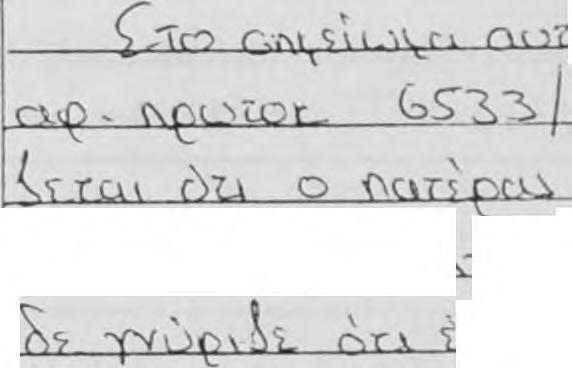 Στο σημείωμα αυτ
αρ. πρωτοκ 6533/
δεται ότι ο πατέρας
δε γνώριζε ότι έ